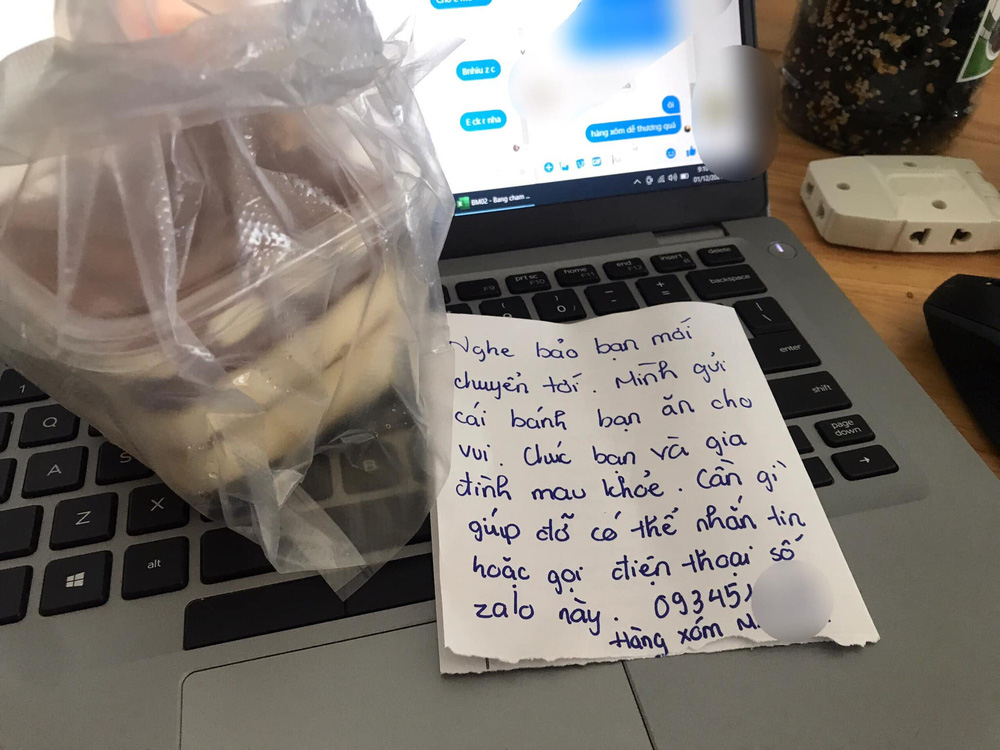 Bnhiu z c
E ck r nha
ôi
hàng xóm dễ thương quá
BM02 - Bang cham ...
01/12/20
F9
prt sc
F10
home
F11
end
F12
insert
delete
)
0
_
-
+
=
backspace
|
\
enter
shift
page
down
→
1
Q
A
S
Z
X
alt
B
Nghe bảo bạn mới
chuyển tới. Mình gửi
cái bánh bạn ăn cho
vui. Chúc bạn và gia
đình mau khỏe. Cần gì
giúp đỡ có thể nhắn tin
hoặc gọi điện thoại số
zalo này. 09345
Hàng xóm